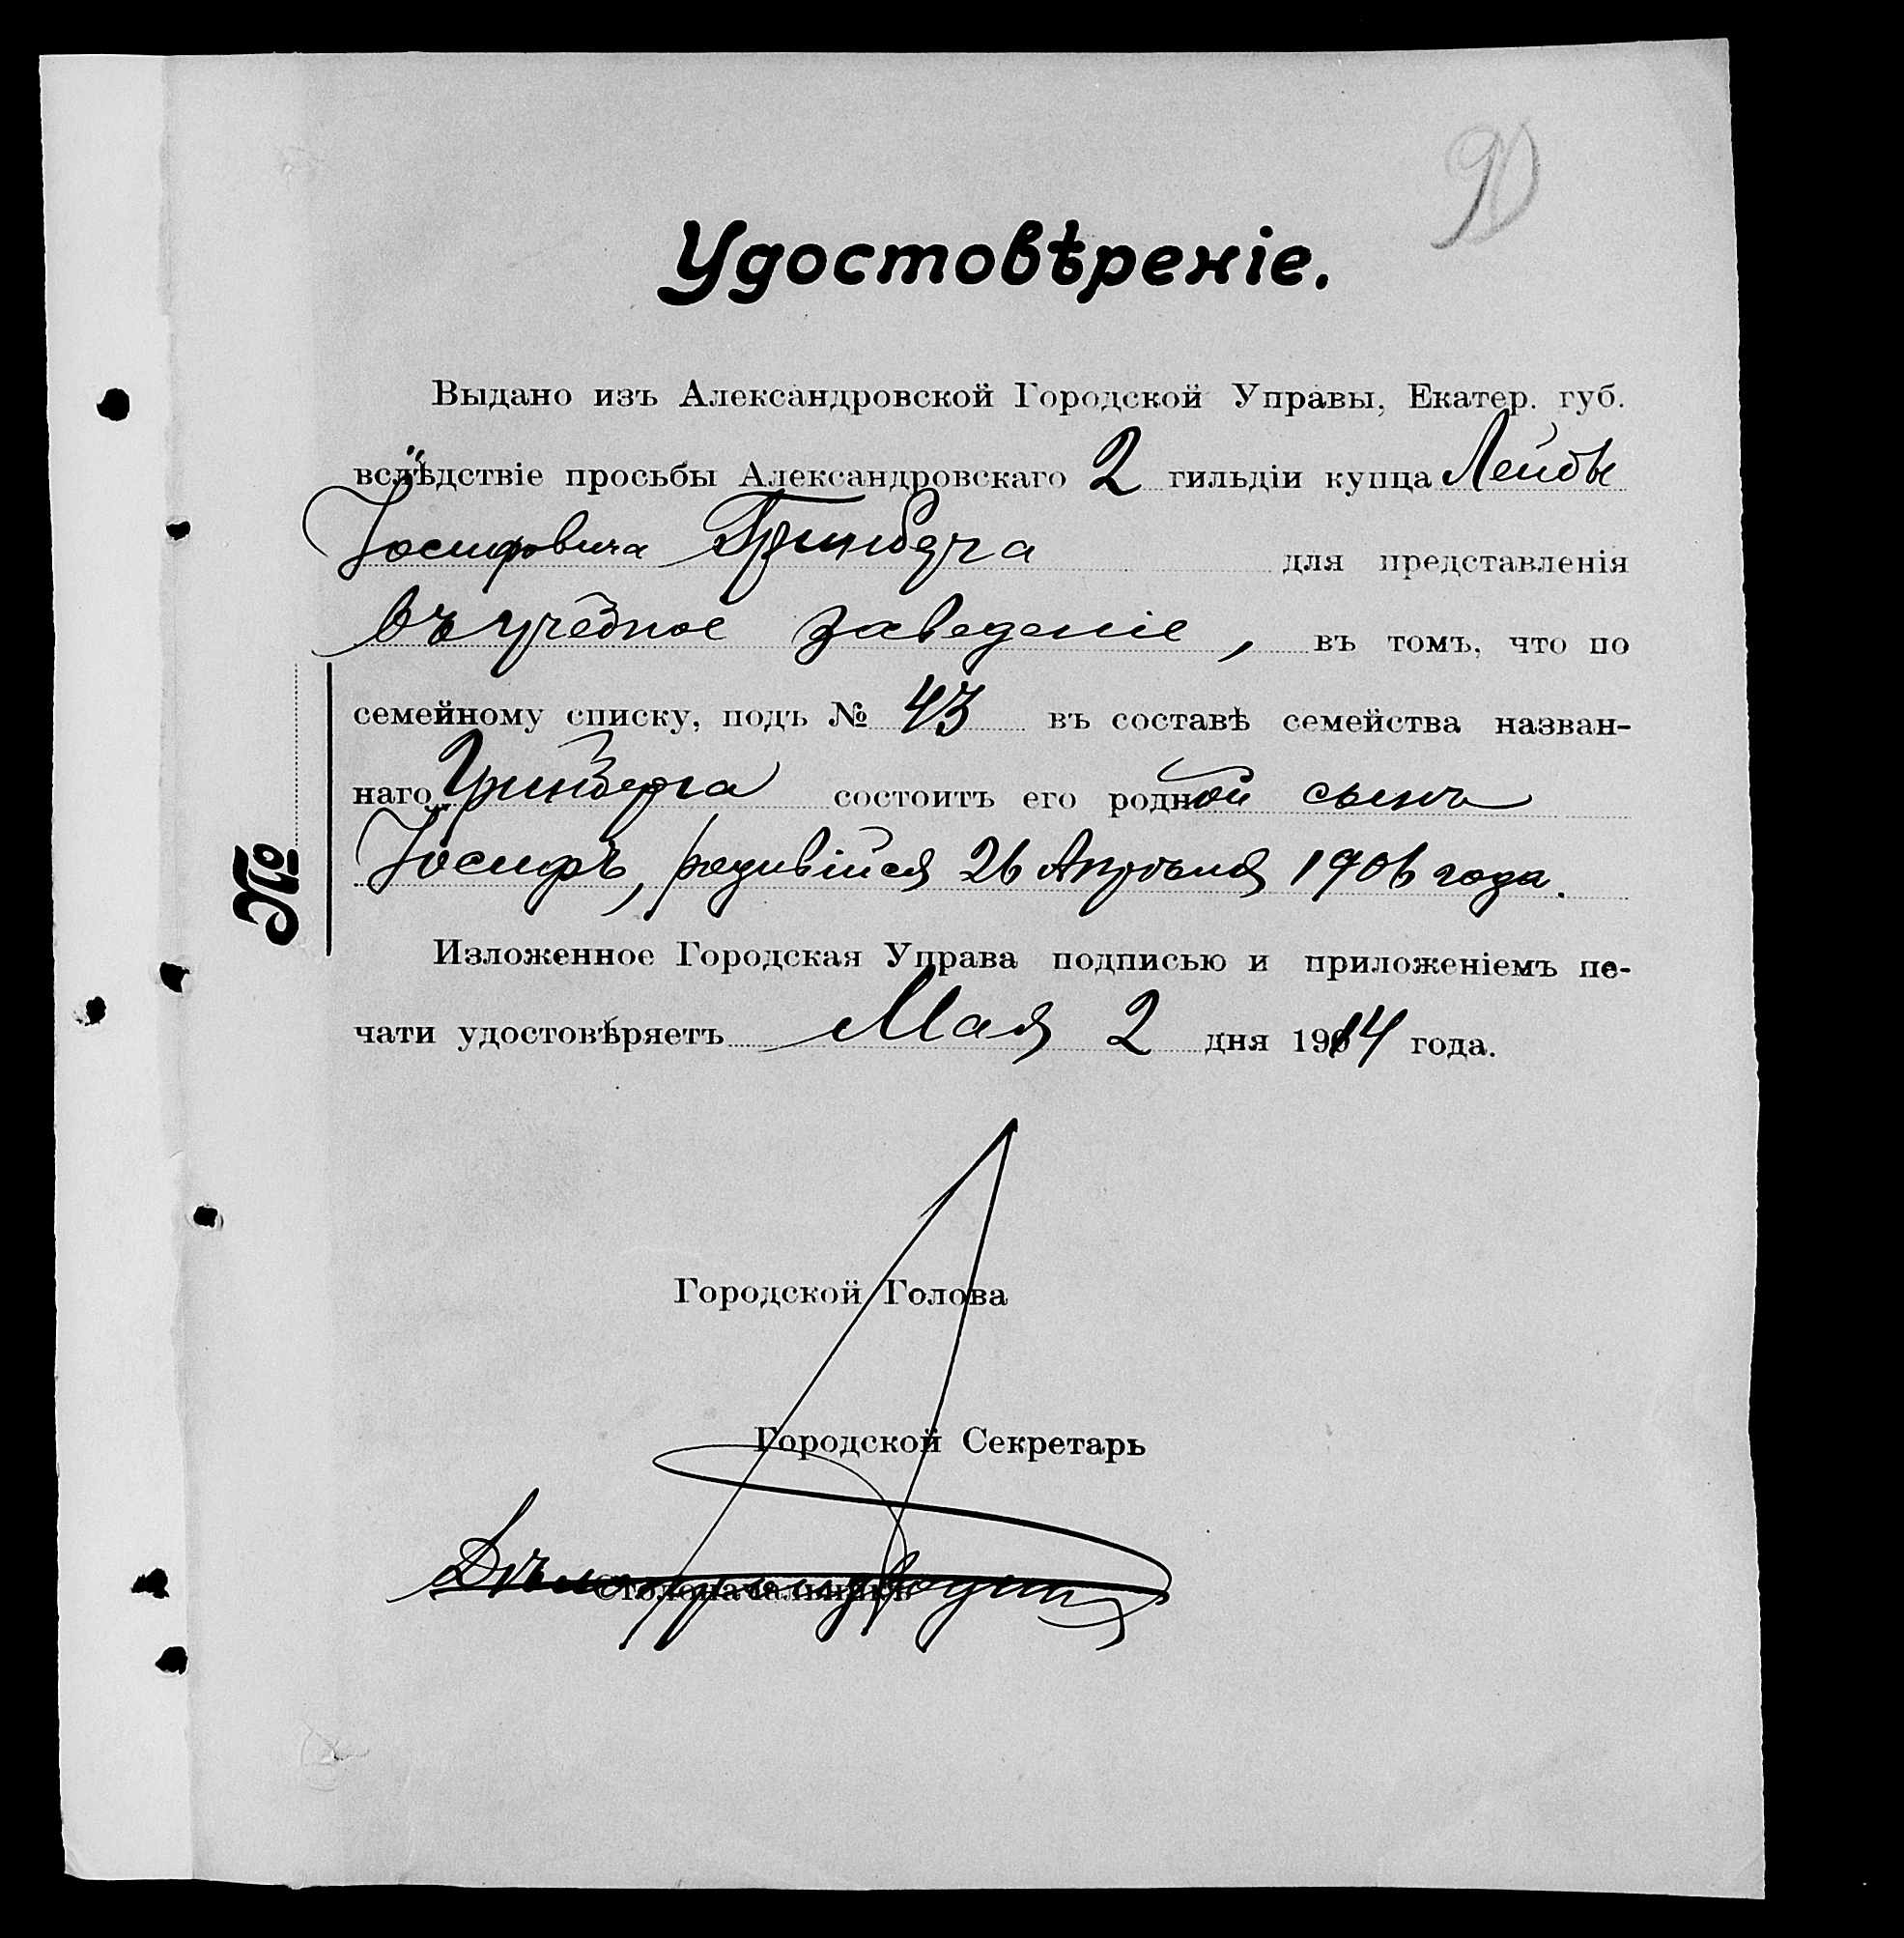 90
Удостовѣреніе.
Выдано изъ Александровской Городской Управы, Екатер. губ.
вслѣдствіе просьбы Александровскаго 2 гильдіи купца Лейбы
Іосифовича Гринберга для представленія
въ учебное заведеніе, въ томъ, что по
семейному списку, подъ № 43 въ составѣ семейства назван-
наго Гринберга состоитъ его родной сынъ
Іосифъ, родившійся 26 Апрѣля 1906 года.
№
Изложенное Городская Управа подписью и приложеніемъ пе-
чати удостовѣряетъ Мая 2 дня 1914 года.
Городской Голова
Городской Секретарь
Дѣлопроизводитель
Столоначальникъ